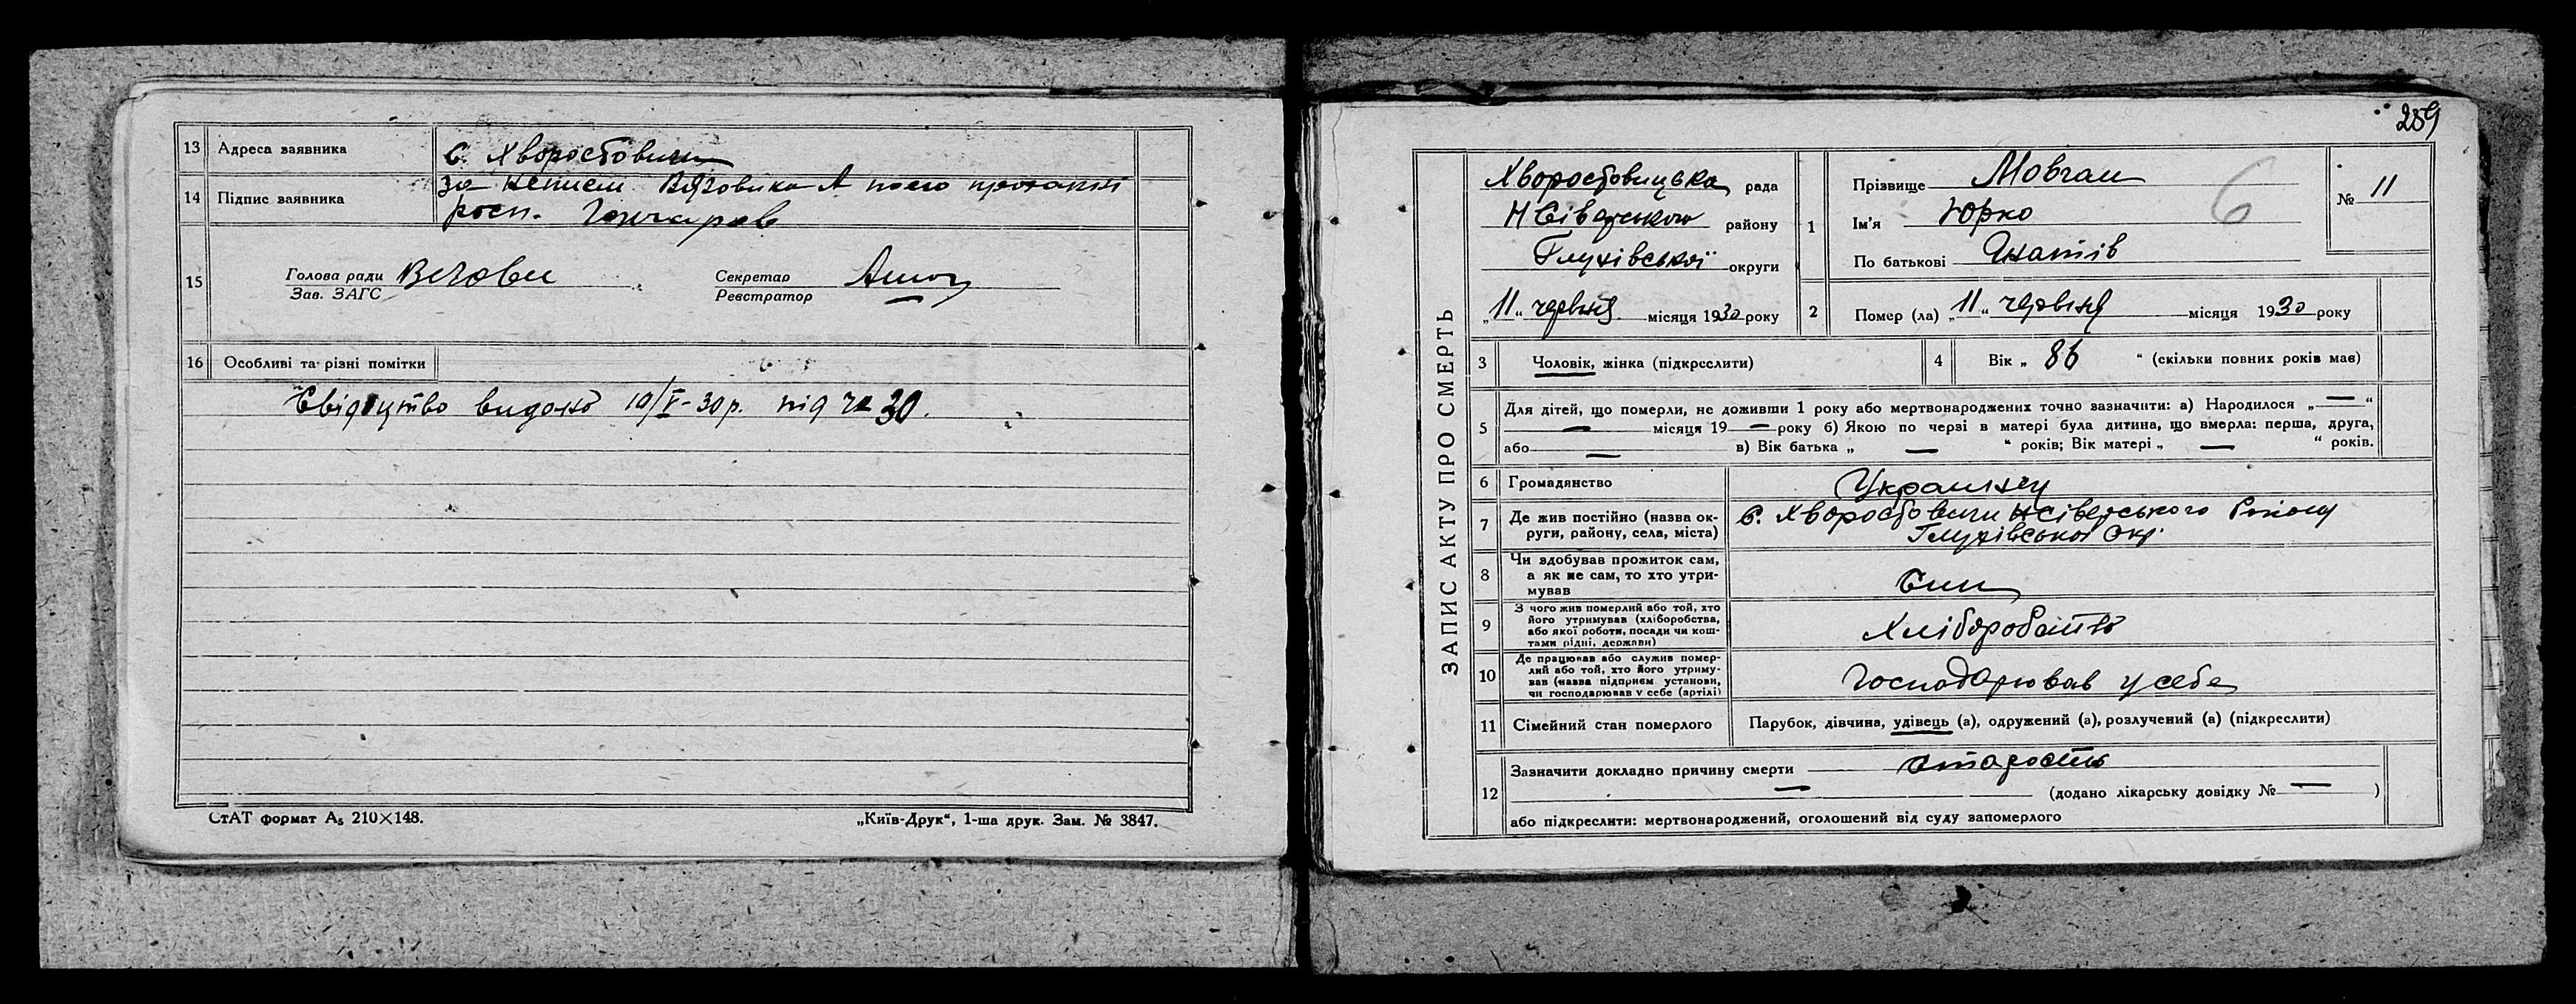 13 Адреса заявника с. Хворостовичи
14 Підпис заявника за неписем Вязовика А
росп. Гончаров
15 Голова ради
Зав. ЗАГС
Секретар
Реєстратор
16 Особливі та різні помітки
Свідоцтво видано 10/V-30р. під № 30.
СтАТ формат А₅ 210×148.
„Київ-Друк“, 1-ша друк. Зам. № 3847.
289
ЗАПИС АКТУ ПРО СМЕРТЬ
Хворостовицька рада
Н Сіверського району
Глухівської округи
„11“ червня місяця 1930 року
1 Прізвище Мовчан
Ім'я Юрко
По батькові Ігнатів
6
№ 11
2 Помер (ла) „11“ червня місяця 1930 року
3 Чоловік, жінка (підкреслити)
4 Вік „ 86 “ (скільки повних років мав)
5 Для дітей, що померли, не доживши 1 року або мертвонароджених точно вазначити: а) Народилося „—“
— місяця 19 — року б) Якою по черзі в матері була дитина, що вмерла: перша, друга,
або — в) Вік батька „ — “ років; Вік матері „ — “ років.
6 Громадянство Украинец
7 Де жив постійно (назва ок-
руги, району, села, міста)
с. Хворостовичи НСіверського Району
Глухівської Окр.
8 Чи здобував прожиток сам,
а як не сам, то хто утри-
мував
Син
9 З чого жив померлий або той, хто
його утримував (хліборобства,
або якої роботи, посади чи кош-
тами рідні, держави)
Хліборобство
10 Де працював або служив помер-
лий або той, хто його утриму-
вав (назва підприєм установи,
чи господарював у себе (артілі)
Господарював у себе
11 Сімейний стан померлого Парубок, дівчина, удівець (а), одружений (а), розлучений (а) (підкреслити)
12 Зазначити докладно причину смерти старость
— (додано лікарську довідку № — )
або підкреслити: мертвонароджений, оголошений від суду запомерлого